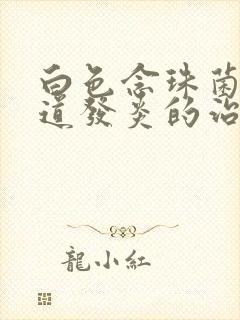 白色念珠菌
道發炎的治
龍小紅